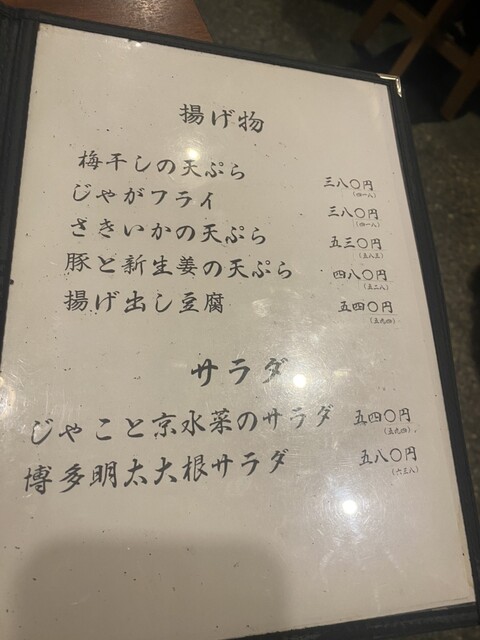 揚げ物
梅干しの天ぷら 三八〇円
(四一八)
じゃがフライ 三八〇円
(四一八)
さきいかの天ぷら 五三〇円
(五八三)
豚と新生姜の天ぷら 四八〇円
(五二八)
揚げ出し豆腐 五四〇円
(五九四)
サラダ
じゃこと京水菜のサラダ 五四〇円
(五九四)
博多明太大根サラダ 五八〇円
(六三八)